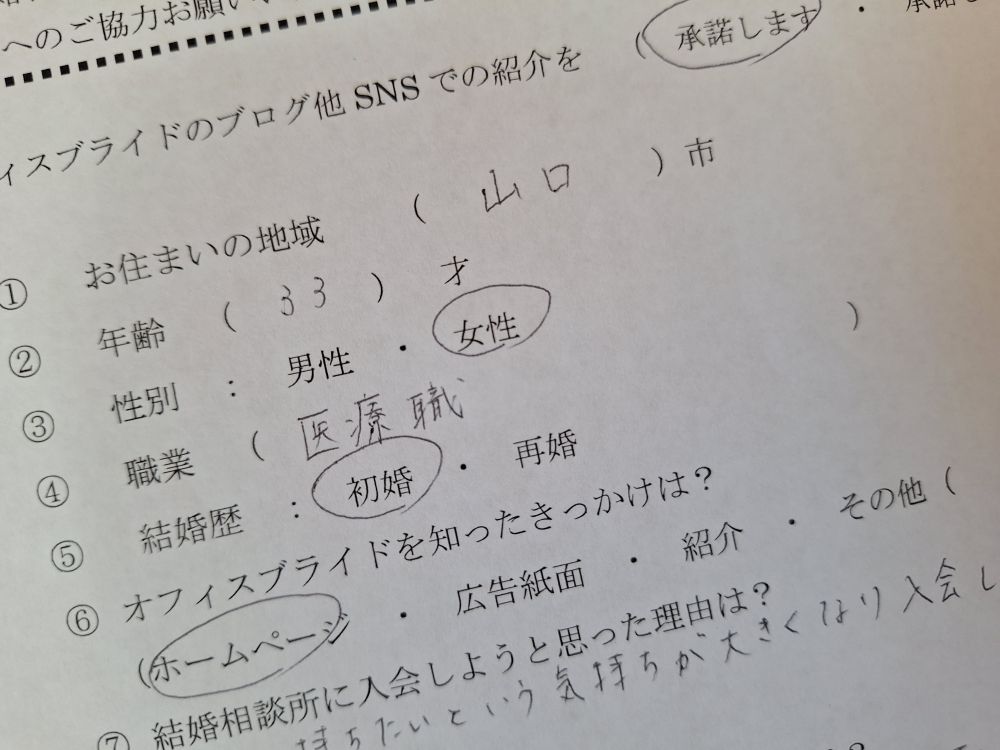 へのご協力お願い
ィスブライドのブログ他 SNS での紹介を (承諾します ・ 承諾し
① お住まいの地域 ( 山口 ) 市
② 年齢 ( 33 ) 才
③ 性別 : 男性 ・ 女性
④ 職業 ( 医療職 )
⑤ 結婚歴 : 初婚 ・ 再婚
⑥ オフィスブライドを知ったきっかけは?
(ホームページ ・ 広告紙面 ・ 紹介 ・ その他 (
⑦ 結婚相談所に入会しようと思った理由は?
持ちたいという気持ちが大きくなり入会し